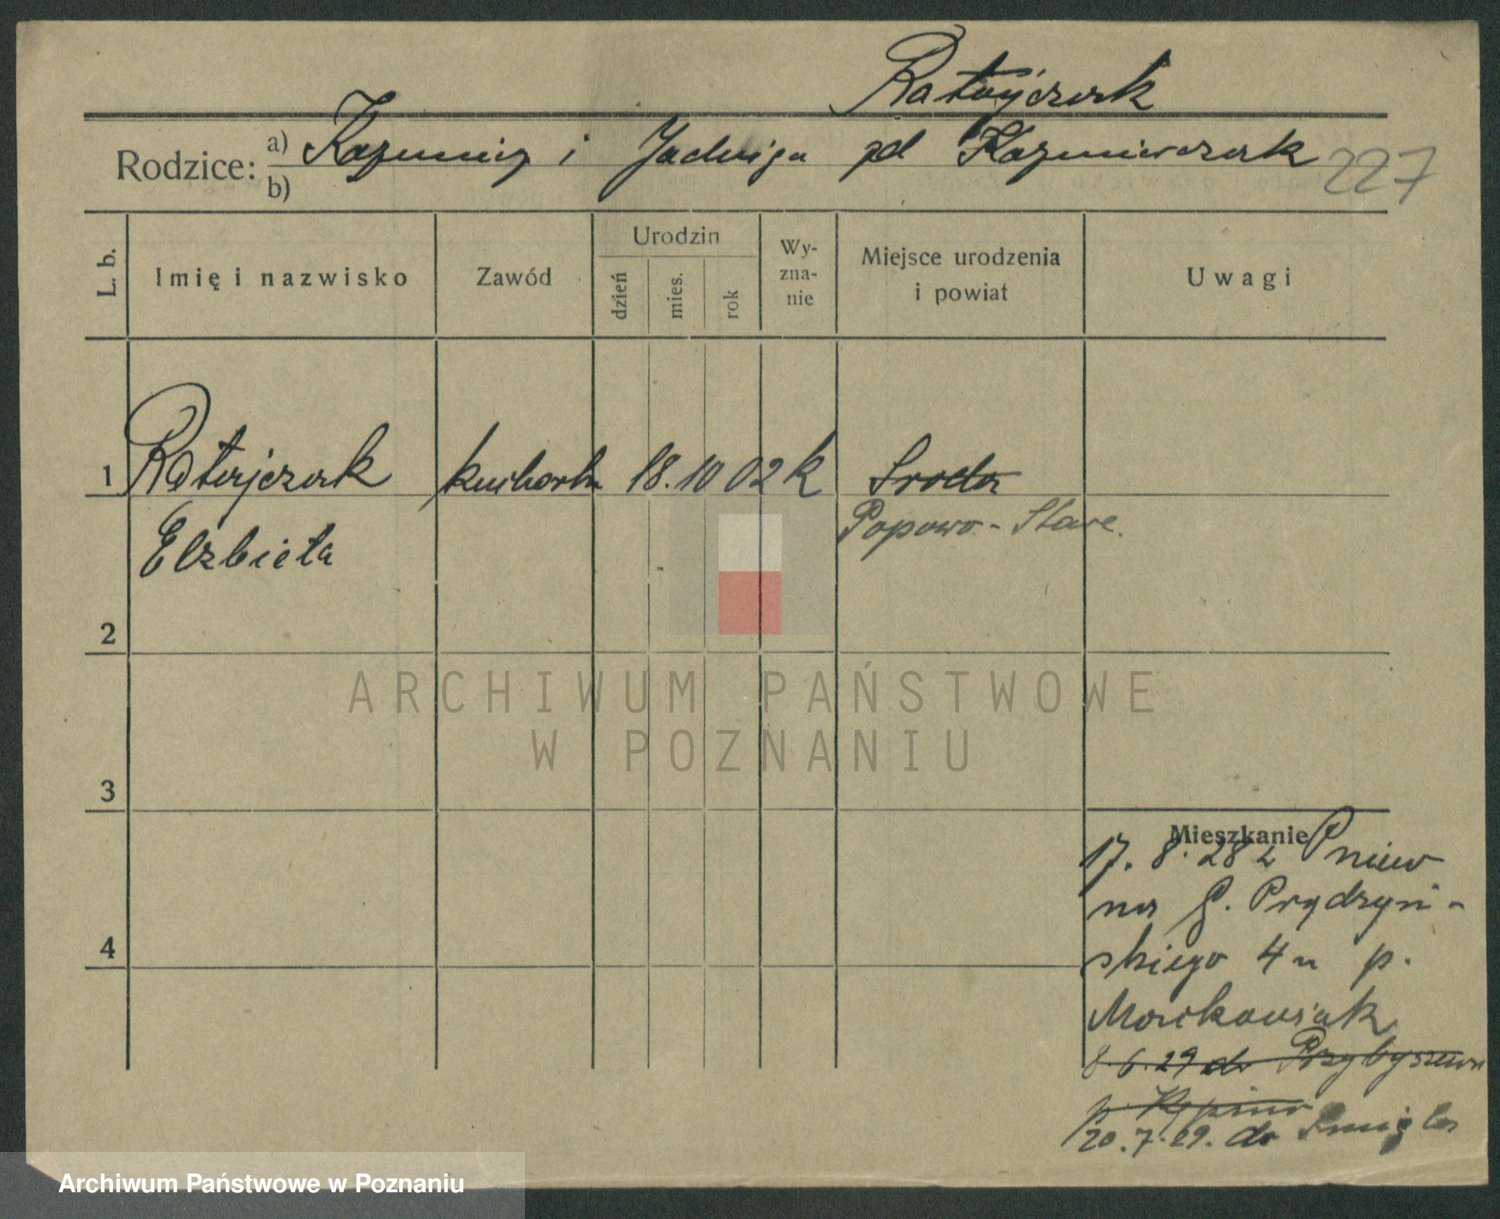 Ratajczak
Rodzice: a) Kazimierz i Jadwiga zd Kazmierczak
b)
227
L. b.
Imię i nazwisko
Zawód
Urodzin
dzień
mies.
rok
Wy-
zna-
nie
Miejsce urodzenia
i powiat
Uwagi
1 Ratajczak kucharka 18. 10 02 k Sroda
Elzbieta
Popowo - Stare.
2
3
4
Mieszkanie
17. 8. 28 z Pniew
na G. Prądzyń-
skiego 4 u p.
Mackowiak
8. 6. 29 do Przybyszewa
p.
20. 7. 29. do Śmigla
ARCHIWUM PAŃSTWOWE
W POZNANIU
Archiwum Państwowe w Poznaniu